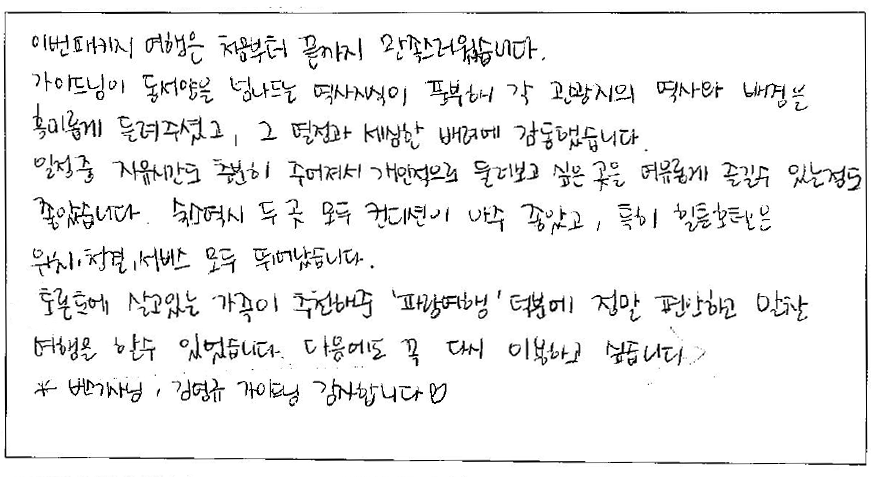 이번패키지 여행은 처음부터 끝까지 만족스러웠습니다.
가이드님이 동서양을 넘나드는 역사지식이 풍부해 각 관광지의 역사와 배경을
흥미롭게 들려주셨고, 그 열정과 세심한 배려에 감동했습니다.
일정중 자유시간도 충분히 주어져서 개인적으로 둘러보고 싶은 곳을 여유롭게 즐길수 있는점도
좋았습니다. 숙소역시 두 곳 모두 컨디션이 아주 좋았고, 특히 힐튼호텔은
위치,청결,서비스 모두 뛰어났습니다.
토론토에 살고있는 가족이 추천해준 '파랑여행' 덕분에 정말 편안하고 알찬
여행을 할수 있었습니다. 다음에도 꼭 다시 이용하고 싶습니다
* 벤기사님, 김영규 가이드님 감사합니다♡